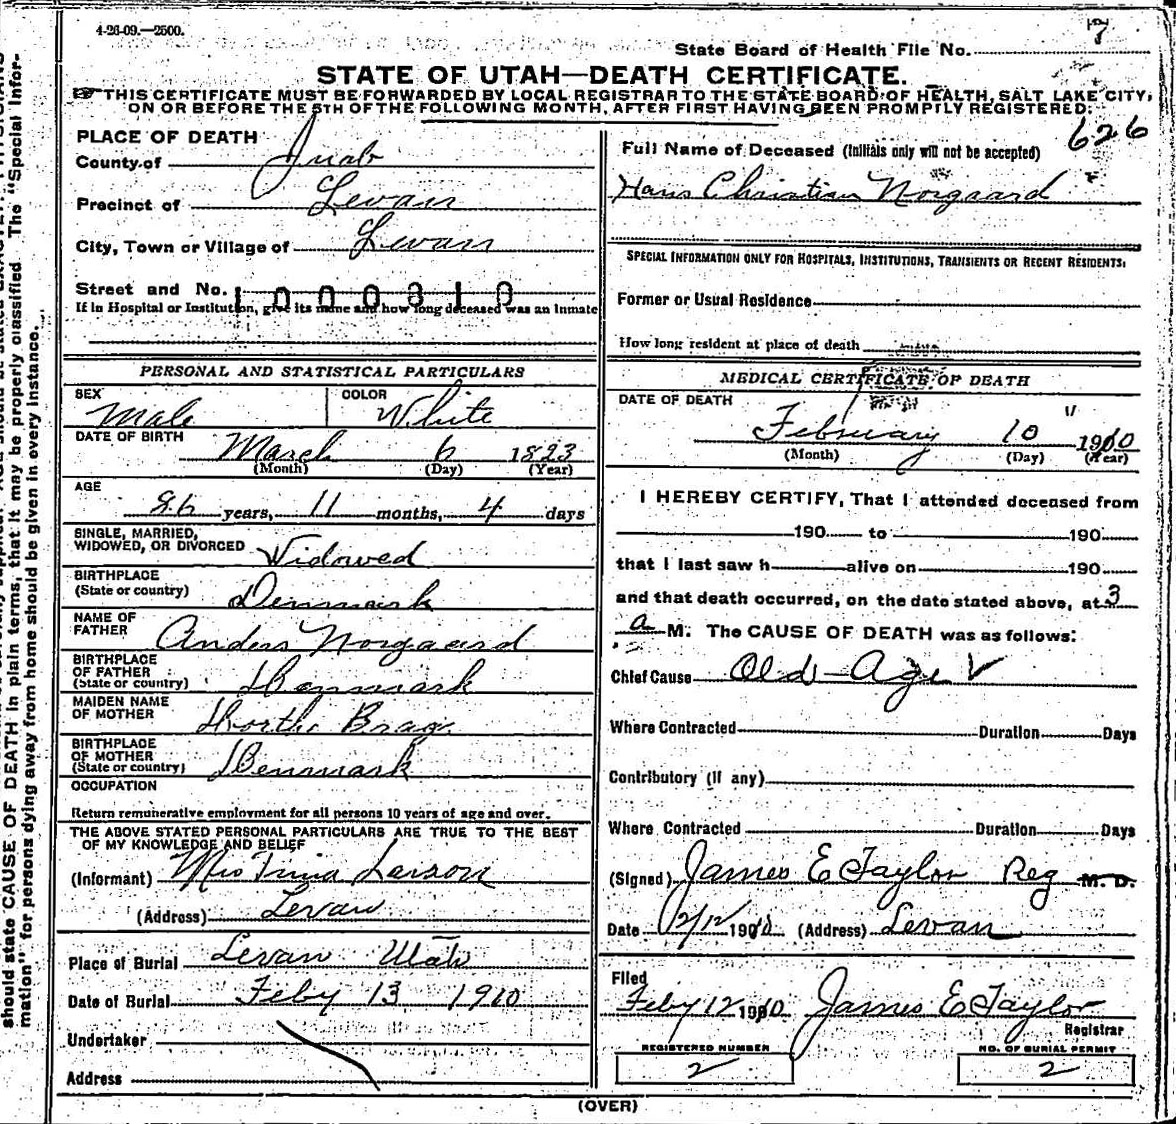 4-26-09.—2500.
7
State Board of Health File No.
STATE OF UTAH—DEATH CERTIFICATE.
THIS CERTIFICATE MUST BE FORWARDED BY LOCAL REGISTRAR TO THE STATE BOARD OF HEALTH, SALT LAKE CITY,
ON OR BEFORE THE 5TH OF THE FOLLOWING MONTH, AFTER FIRST HAVING BEEN PROMPTLY REGISTERED:
626
PLACE OF DEATH
County of Juab
Precinct of Levan
City, Town or Village of Levan
Street and No.
1000810
If in Hospital or Institution, give its name and how long deceased was an inmate
Full Name of Deceased (Initials only will not be accepted)
Hans Christian Norgaard
SPECIAL INFORMATION ONLY FOR HOSPITALS, INSTITUTIONS, TRANSIENTS OR RECENT RESIDENTS:
Former or Usual Residence
How long resident at place of death
PERSONAL AND STATISTICAL PARTICULARS
SEX Male COLOR White
DATE OF BIRTH March 6 1823
(Month) (Day) (Year)
AGE
86 years, 11 months, 4 days
SINGLE, MARRIED,
WIDOWED, OR DIVORCED Widowed
BIRTHPLACE
(State or country) Denmark
NAME OF
FATHER Anders Norgaard
BIRTHPLACE
OF FATHER
(State or country) Denmark
MAIDEN NAME
OF MOTHER
BIRTHPLACE
OF MOTHER
(State or country) Denmark
OCCUPATION
Return remunerative employment for all persons 10 years of age and over.
THE ABOVE STATED PERSONAL PARTICULARS ARE TRUE TO THE BEST
OF MY KNOWLEDGE AND BELIEF
(Informant) Mrs Trina Larson
(Address) Levan
Place of Burial Levan Utah
Date of Burial Feby 13 1910
Undertaker
Address
MEDICAL CERTIFICATE OF DEATH
DATE OF DEATH
February 10 1910
(Month) (Day) (Year)
I HEREBY CERTIFY, That I attended deceased from
190 to 190
that I last saw h alive on 190
and that death occurred, on the date stated above, at 3
a M. The CAUSE OF DEATH was as follows:
Chief Cause Old Age
Where Contracted Duration Days
Contributory (if any)
Where Contracted Duration Days
(Signed) James E Taylor Reg M. D.
Date 2/12 1910 (Address) Levan
Filed
Feby 12 1910 James E Taylor
Registrar
REGISTERED NUMBER
2
NO. OF BURIAL PERMIT
2
(OVER)
should state CAUSE OF DEATH in plain terms, that it may be properly classified. The "Special Infor-
mation" for persons dying away from home should be given in every instance.